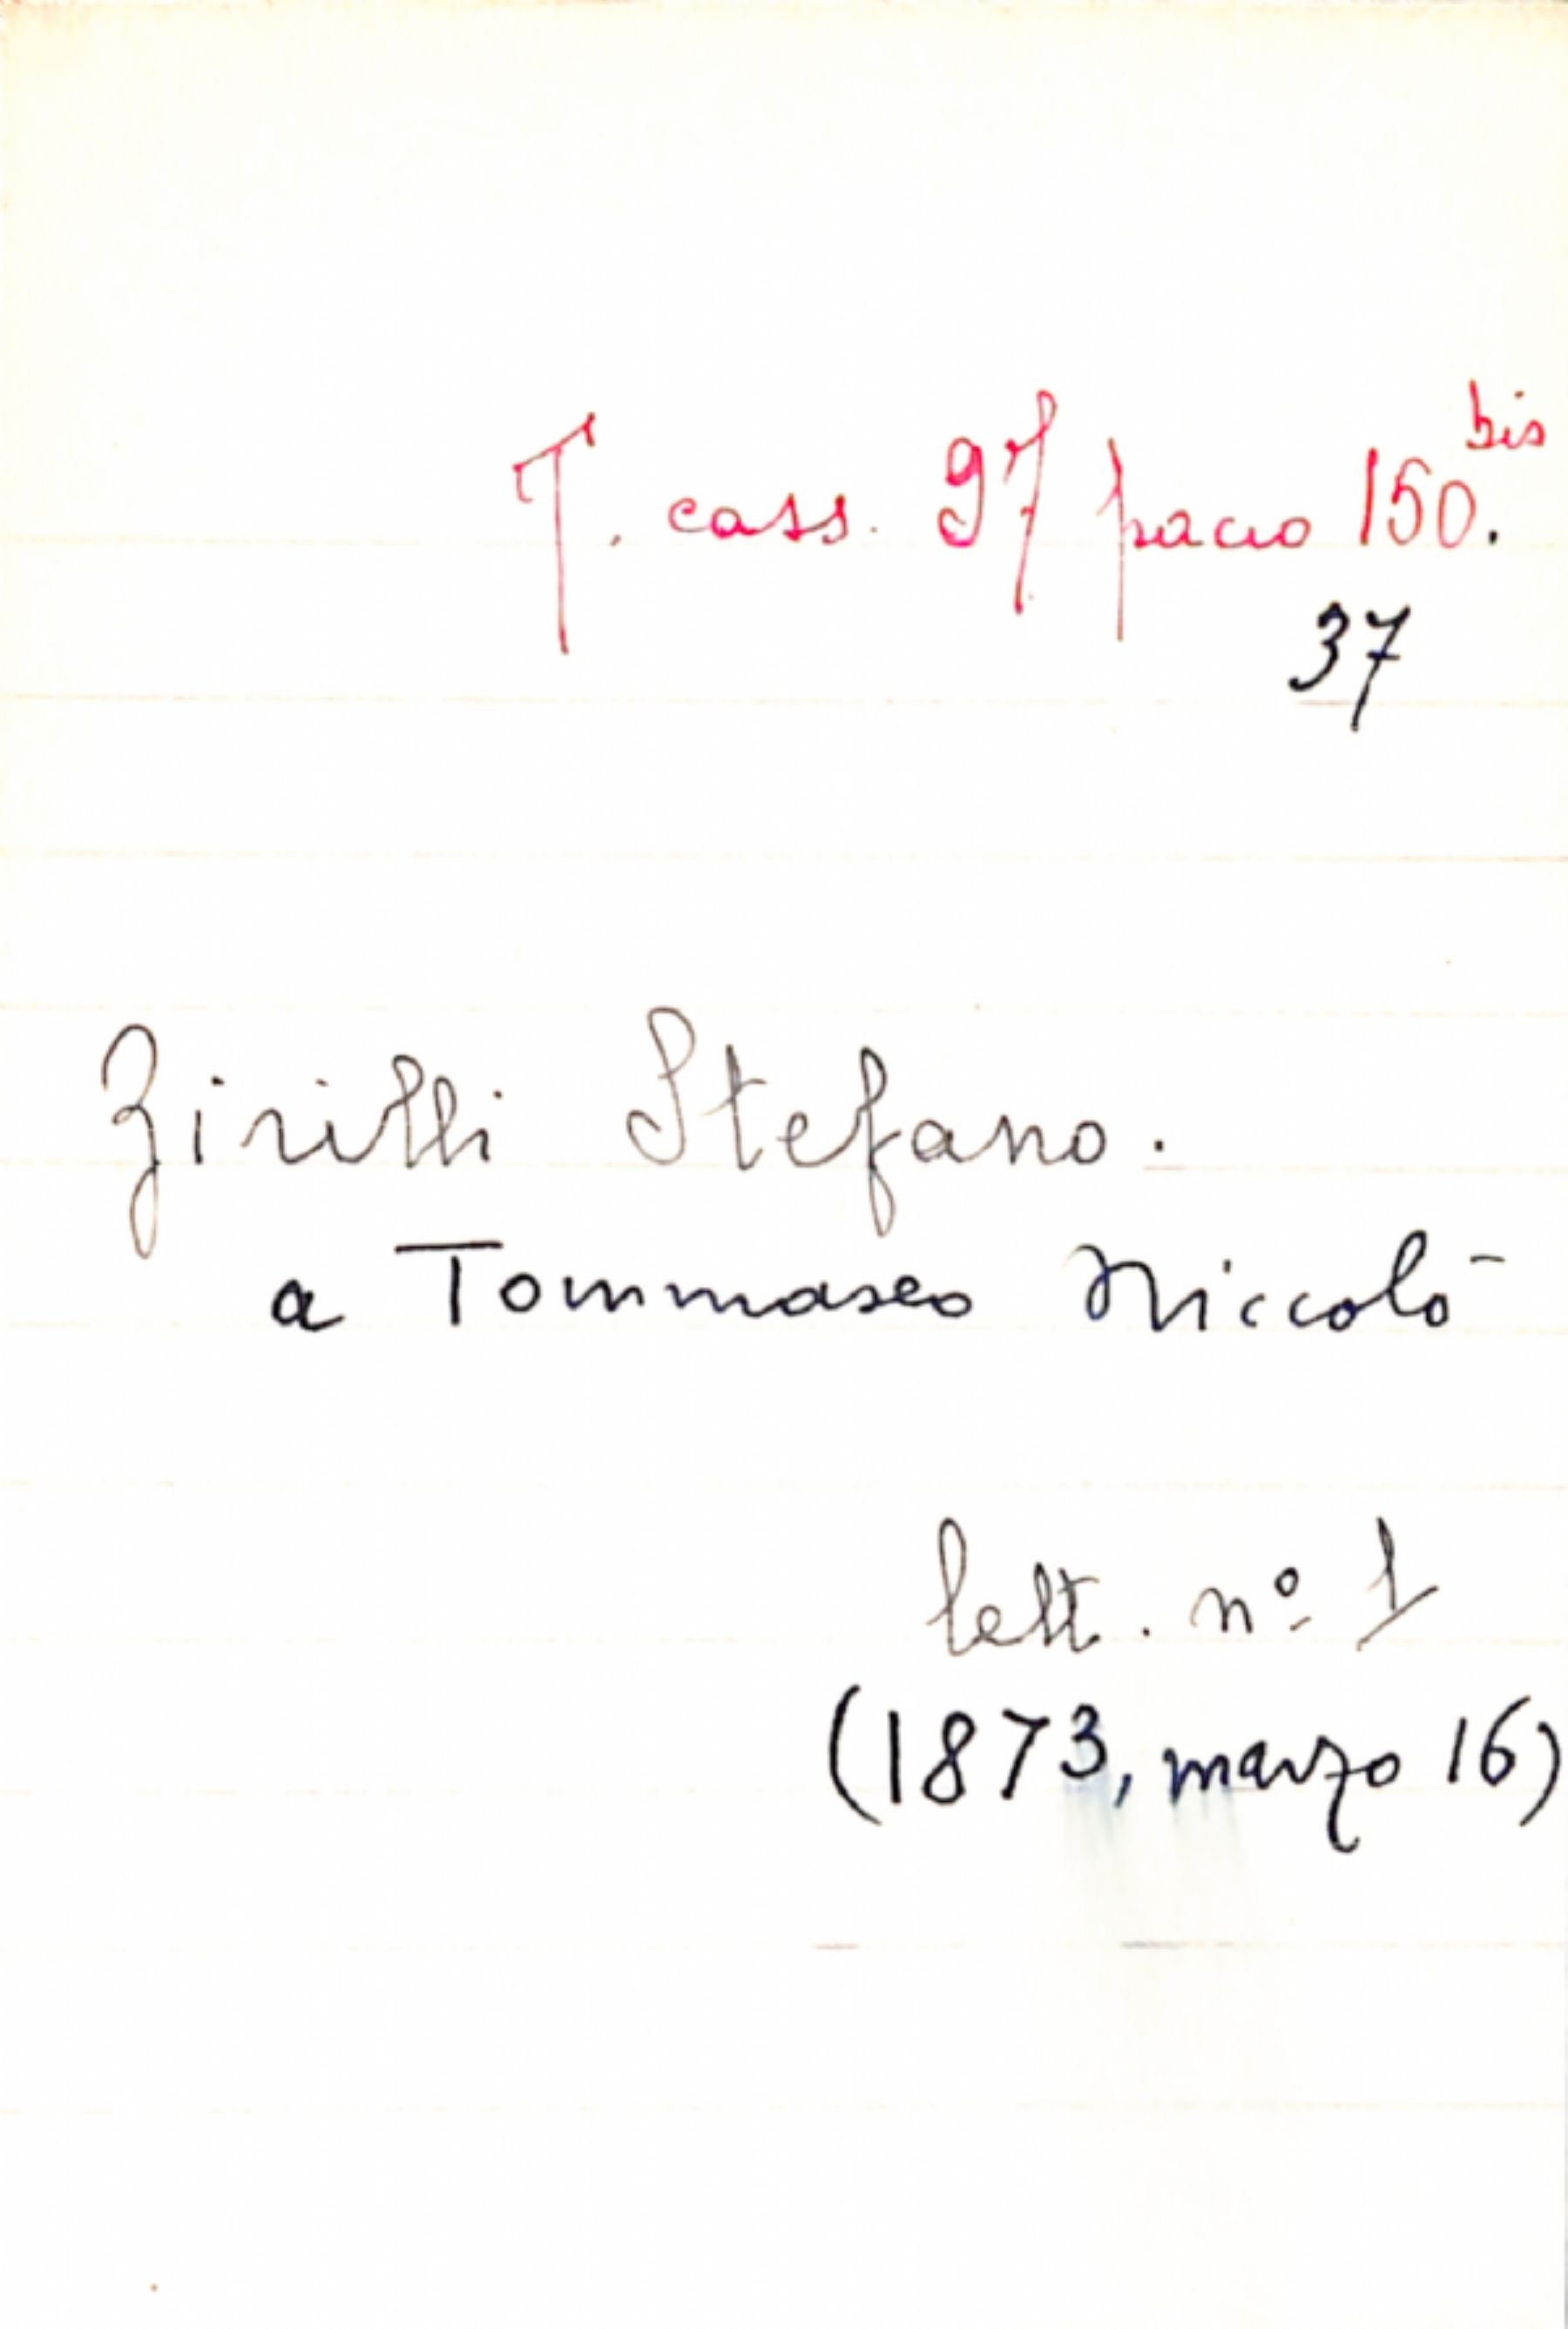 T. cass. 97 pacco 150. bis
37
Zirilli Stefano.
a Tommaseo Niccolò
lett. nº 1
(1873, marzo 16)